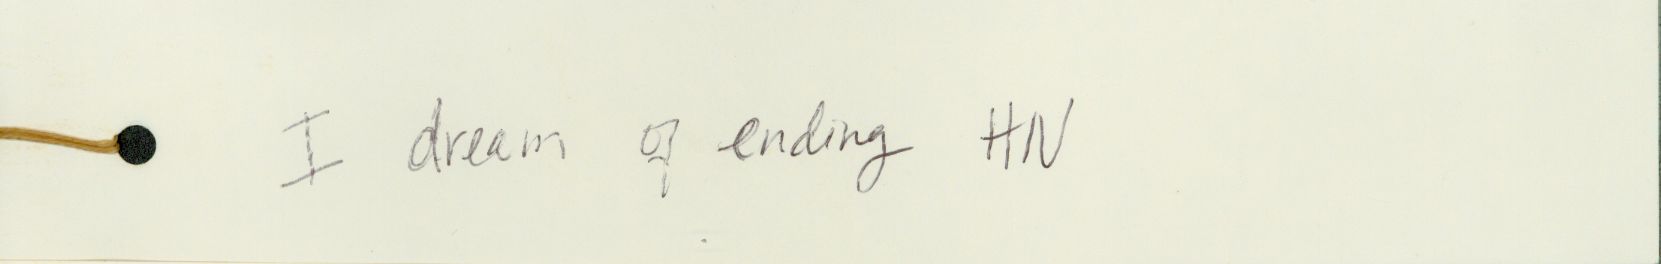 I dream of ending HN